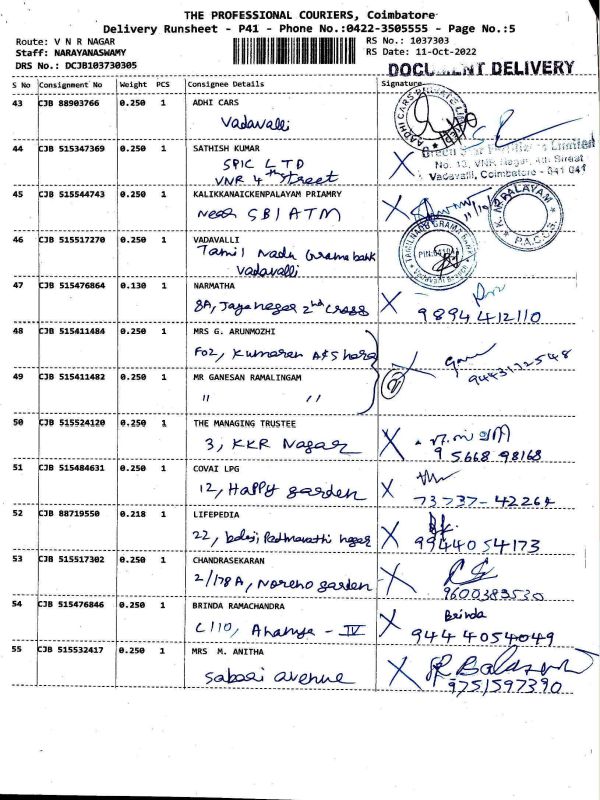 THE PROFESSIONAL COURIERS, Coimbatore
Delivery Runsheet - P41 - Phone No.:0422-3505555 - Page No.:5
Route: V N R NAGAR RS No.: 1037303
Staff: NARAYANASWAMY RS Date: 11-Oct-2022
DRS No.: DCJB103730305 DOCUMENT DELIVERY
S No Consignment No Weight PCS Consignee Details Signature
43 CJB 88903766 0.250 1 ADHI CARS
Vadavalli
44 CJB 515347369 0.250 1 SATHISH KUMAR
SPIC LTD
VNR 4th Street
No. 13, VNR Nagar, 4th Street
Vadavalli, Coimbatore - 641 041
45 CJB 515544743 0.250 1 KALIKKANAICKENPALAYAM PRIAMRY
Near SBI ATM
K. N. PALAYAM P.A.C.C.S.
46 CJB 515517270 0.250 1 VADAVALLI
Tamil Nadu Grama bank
Vadavalli
47 CJB 515476864 0.130 1 NARMATHA
8A, Jaya nagar 2nd Cross X 9894412110
48 CJB 515411484 0.250 1 MRS G. ARUNMOZHI
F02, Kumaran
49 CJB 515411482 0.250 1 MR GANESAN RAMALINGAM
" " 2 X 9443132548
50 CJB 515524120 0.250 1 THE MANAGING TRUSTEE
3, KKR Nagar X 95668 98168
51 CJB 515484631 0.250 1 COVAI LPG
12, Happy garden X 73737-42264
52 CJB 88719550 0.218 1 LIFEPEDIA
22, balaji Padmavathi nagar X 9944054173
53 CJB 515517302 0.250 1 CHANDRASEKARAN
2/178A, Noreno garden X 9600383530
54 CJB 515476846 0.250 1 BRINDA RAMACHANDRA
C110, Ananya - IV X Brinda
9444054049
55 CJB 515532417 0.250 1 MRS M. ANITHA
Sabari avenue X 9751597390